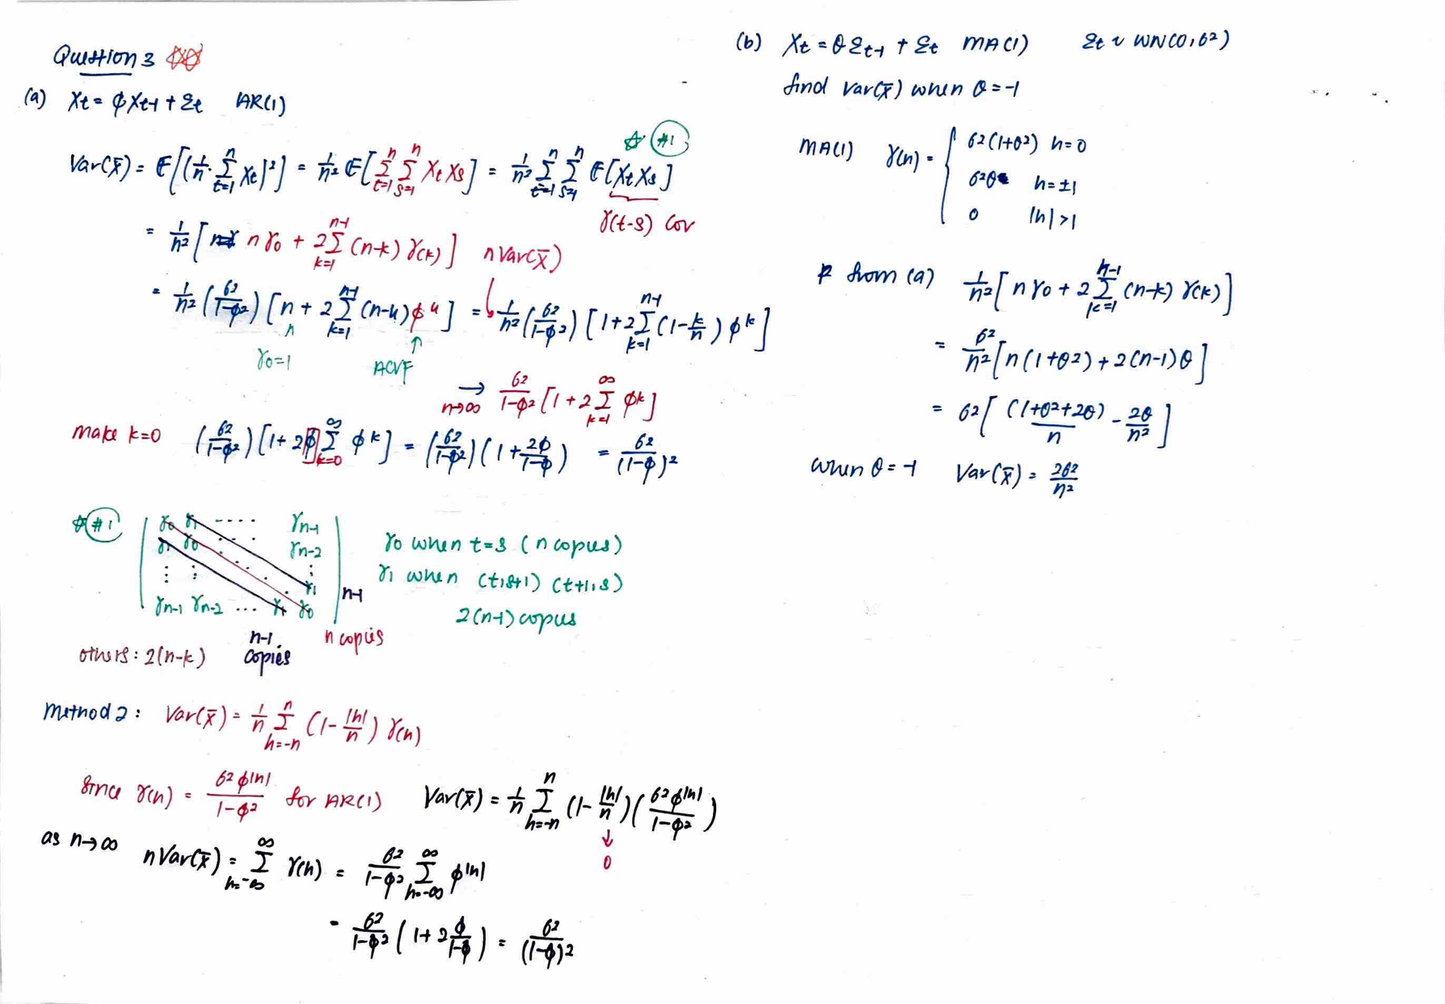 Question 3
(a) Xt = φXt-1 + Σt AR(1)
Var(X̄) = E[(1/n Σ_{t=1}^{n} Xt)²] = 1/n² E[Σ_{t=1}^{n} Σ_{s=1}^{n} Xt Xs] = 1/n² Σ_{t=1}^{n} Σ_{s=1}^{n} E[Xt Xs] ☆ #1
γ(t-s) Cov
= 1/n² [nγ0 + 2Σ_{k=1}^{n-1} (n-k) γ(k)] nVar(X̄)
= 1/n² (σ²/1-φ²) [n + 2Σ_{k=1}^{n-1} (n-k)φ^k] = 1/n² (σ²/1-φ²) [1+2Σ_{k=1}^{n-1} (1-k/n) φ^k]
γ0=1 ACVF
→ n→∞ σ²/1-φ² [1+2Σ_{k=1}^{∞} φ^k]
make k=0 (σ²/1-φ²)[1+2φ Σ_{k=0}^{∞} φ^k] = (σ²/1-φ²)(1+2φ/1-φ) = σ²/(1-φ)²
☆ #1
γ0 γ1 ---- γn-1
γ1 γ0 γn-2
γ1
γn-1 γn-2 ... γ1 γ0 n-1
n-1 copies n copies
γ0 when t=s (n copies)
γ1 when (t,s+1) (t+1,s)
2(n-1) copies
others: 2(n-k)
Method 2: Var(X̄) = 1/n Σ_{h=-n}^{n} (1-|h|/n) γ(h)
Since γ(h) = σ²φ^|h|/1-φ² for AR(1) Var(X̄) = 1/n Σ_{h=-n}^{n} (1-|h|/n)(σ²φ^|h|/1-φ²)
↓
0
as n→∞ nVar(X̄) = Σ_{h=-∞}^{∞} γ(h) = σ²/1-φ² Σ_{h=-∞}^{∞} φ^|h|
= σ²/1-φ² (1+2φ/1-φ) = σ²/(1-φ)²
(b) Xt = θΣt-1 + Σt MA(1) Σt ~ WN(0,σ²)
find Var(X̄) when θ=-1
MA(1) γ(h) = { σ²(1+θ²) h=0
σ²θ h=±1
0 |h|>1
from (a) 1/n² [nγ0 + 2Σ_{k=1}^{n-1} (n-k) γ(k)]
= σ²/n² [n(1+θ²)+2(n-1)θ]
= σ² [(1+θ²+2θ)/n - 2θ/n²]
when θ=-1 Var(X̄) = 2σ²/n²